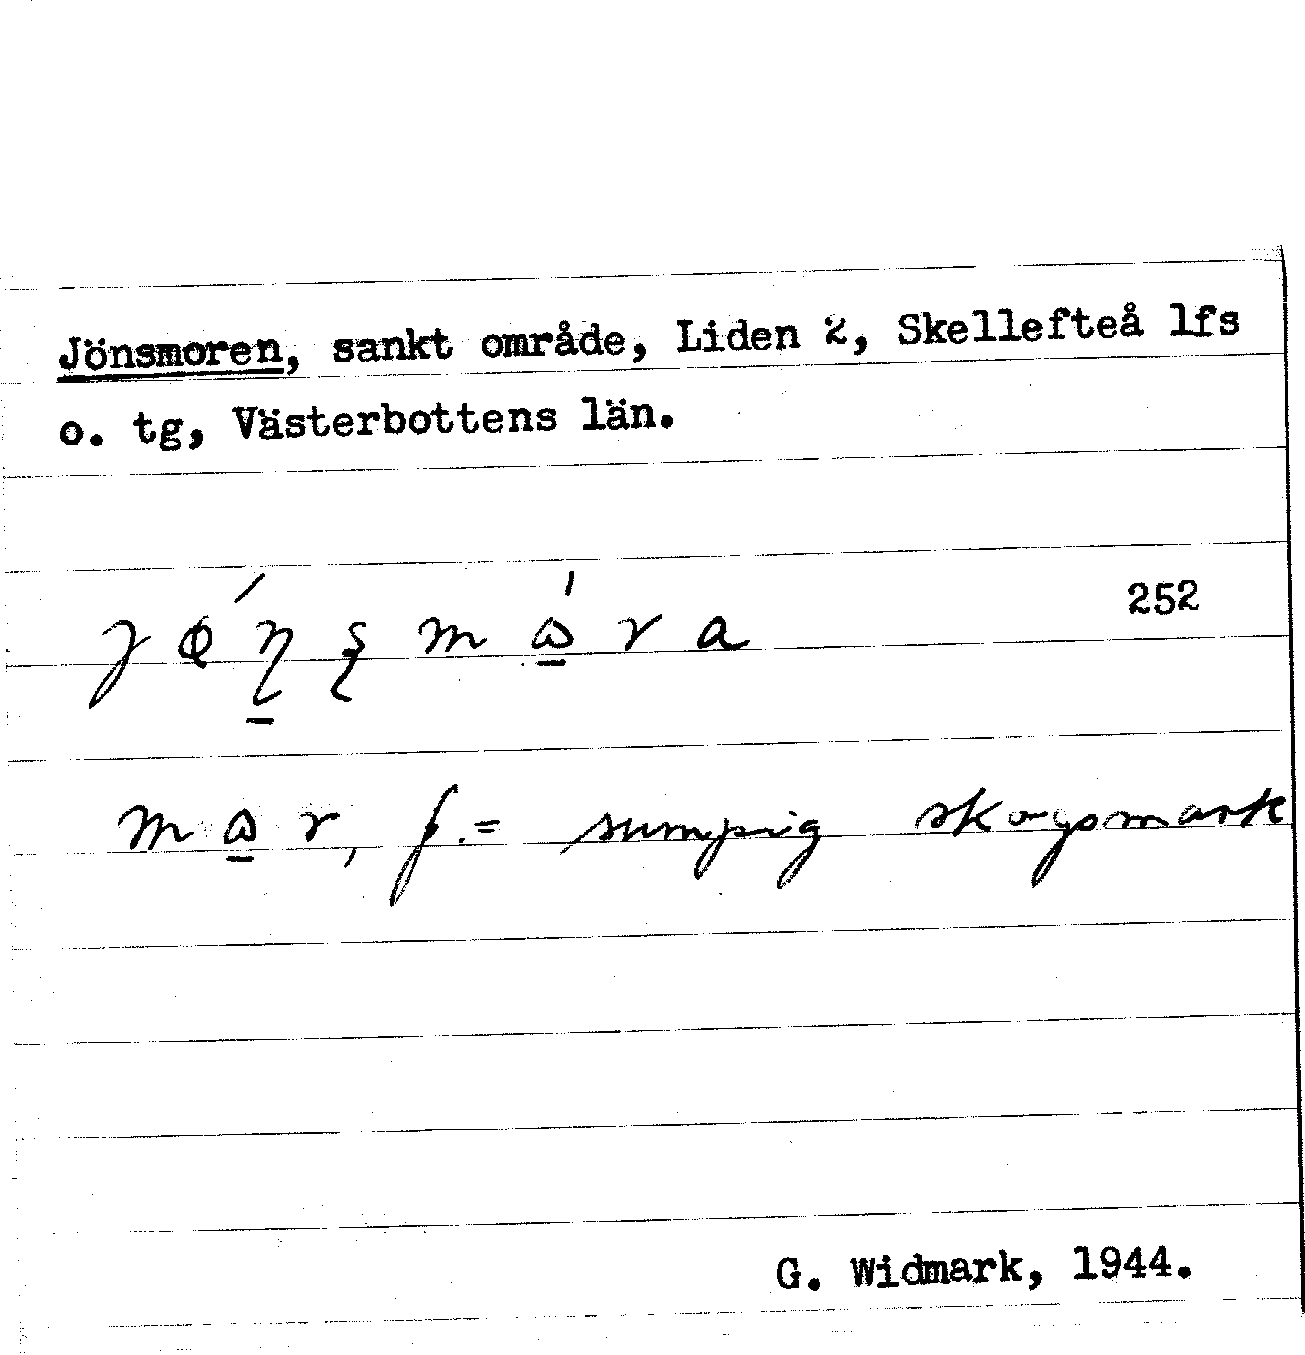 Jönsmoren, sankt område, Liden 2, Skellefteå lfs
o. tg, Västerbottens län.
252
f. = sumpig skogsmark
G. Widmark, 1944.